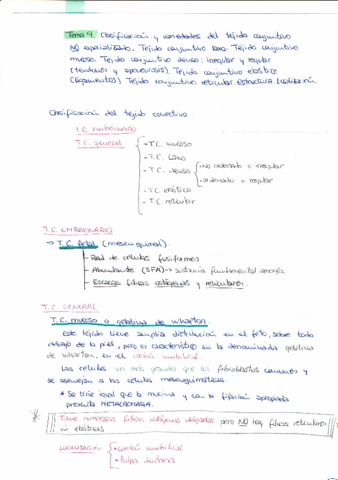 Tema 9. Clasificación y variedades del tejido conjuntivo
NO especializado. Tejido conjuntivo laxo. Tejido conjuntivo
mucoso. Tejido conjuntivo denso: irregular y regular
(tendones y aponeurosis). Tejido conjuntivo elástico
(ligamentos). Tejido conjuntivo reticular: estructura. Localización
Clasificación del tejido conectivo
T.C. embrionario
T.C. general
- T.C. mucoso
- T.C. Laxo
- T.C. denso
- No ordenado o irregular
- ordenado o regular
- T.C. elástico
- T.C. reticular
T.C. EMBRIONARIO
→ T.C. fetal (mesenquimal).
- Red de células fusiformes
- Abundante (SFA) → sustancia fundamental amorfa.
- Escasas fibras colágenas y reticulares.
T.C. GENERAL
T.C. mucoso o gelatina de wharton
Este tejido tiene amplia distribución en el feto, sobre todo
debajo de la piel, pero es característico en la denominada gelatina
de wharton, en el cordón umbilical.
Las células son más grandes que los fibroblastos comunes y
se asemejan a las células mesenquimáticas.
* Se tiñe igual que la mucina y con la fijación apropiada
presenta METACROMASIA.
* Tiene numerosas fibras colágenas delgadas pero NO hay fibras reticulares
ni elásticas
LOCALIZACIÓN
• Cordón umbilical
• Pulpa dentaria